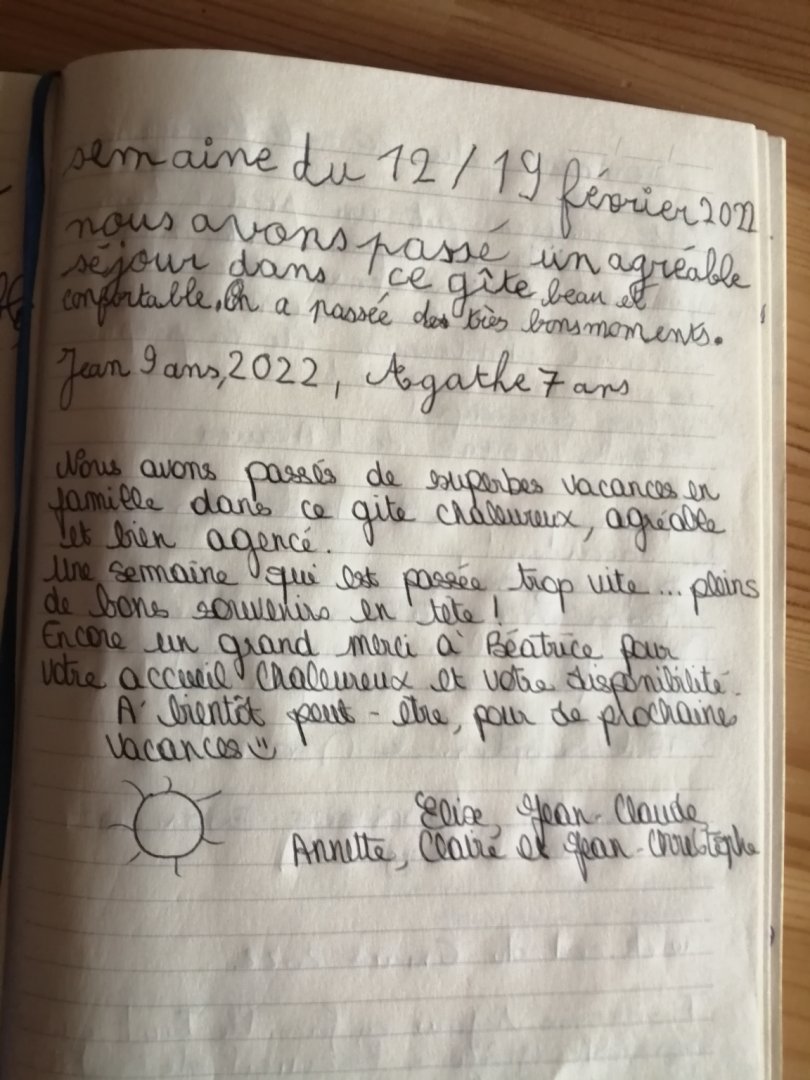 semaine du 12/19 février 2022
nous avons passé un agréable
séjour dans ce gîte beau et
confortable. On a passée des très bons moments.
Jean 9 ans, 2022, Agathe 7 ans
Nous avons passés de superbes vacances en
famille dans ce gite chaleureux, agréable
et bien agencé.
Une semaine qui est passée trop vite... pleins
de bons souvenirs en tête !
Encore un grand merci à Béatrice pour
votre accueil chaleureux et votre disponibilité.
A bientôt peut-être, pour de prochaines
vacances
Elise, Jean-Claude,
Annette, Claire et Jean-Christophe